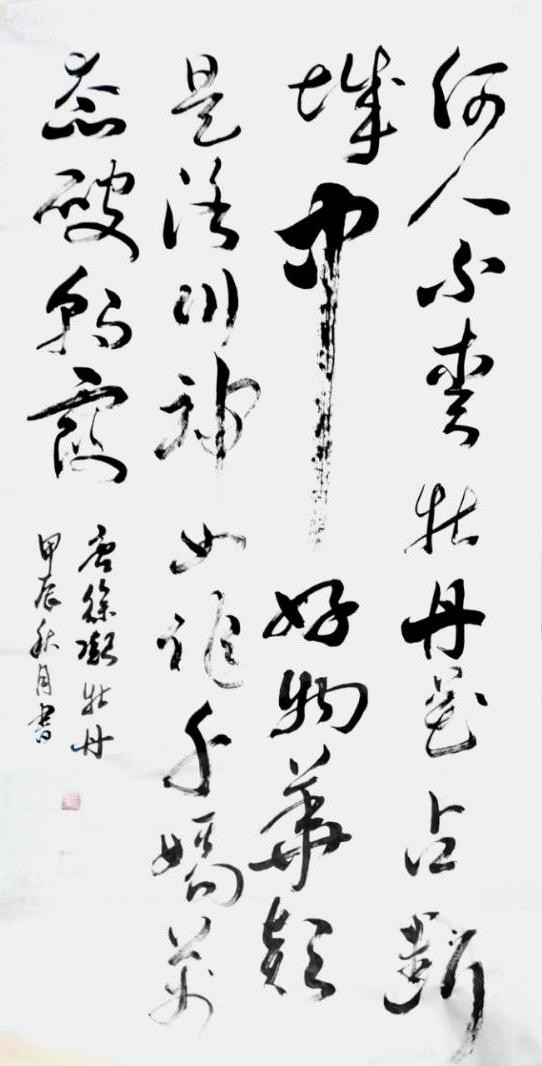 何人不愛牡丹花占斷
城中好物華疑
是洛川神女作千嬌萬
态破朝霞
唐徐凝牡丹
甲辰秋月書